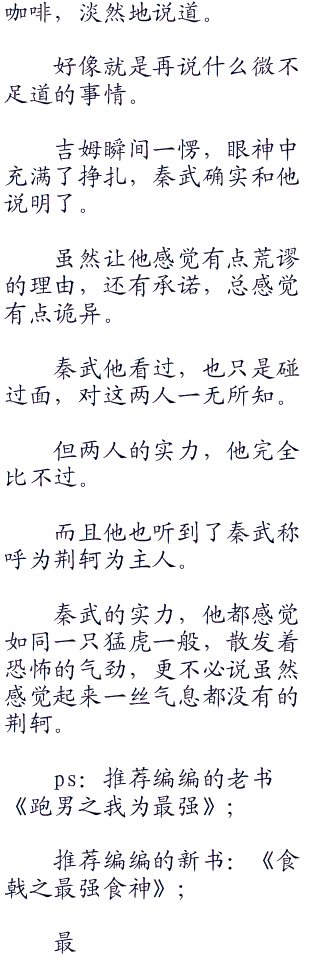 咖啡，淡然地说道。
好像就是再说什么微不
足道的事情。
吉姆瞬间一愣，眼神中
充满了挣扎，秦武确实和他
说明了。
虽然让他感觉有点荒谬
的理由，还有承诺，总感觉
有点诡异。
秦武他看过，也只是碰
过面，对这两人一无所知。
但两人的实力，他完全
比不过。
而且他也听到了秦武称
呼为荆轲为主人。
秦武的实力，他都感觉
如同一只猛虎一般，散发着
恐怖的气劲，更不必说虽然
感觉起来一丝气息都没有的
荆轲。
ps：推荐编编的老书
《跑男之我为最强》；
推荐编编的新书：《食
戟之最强食神》；
最